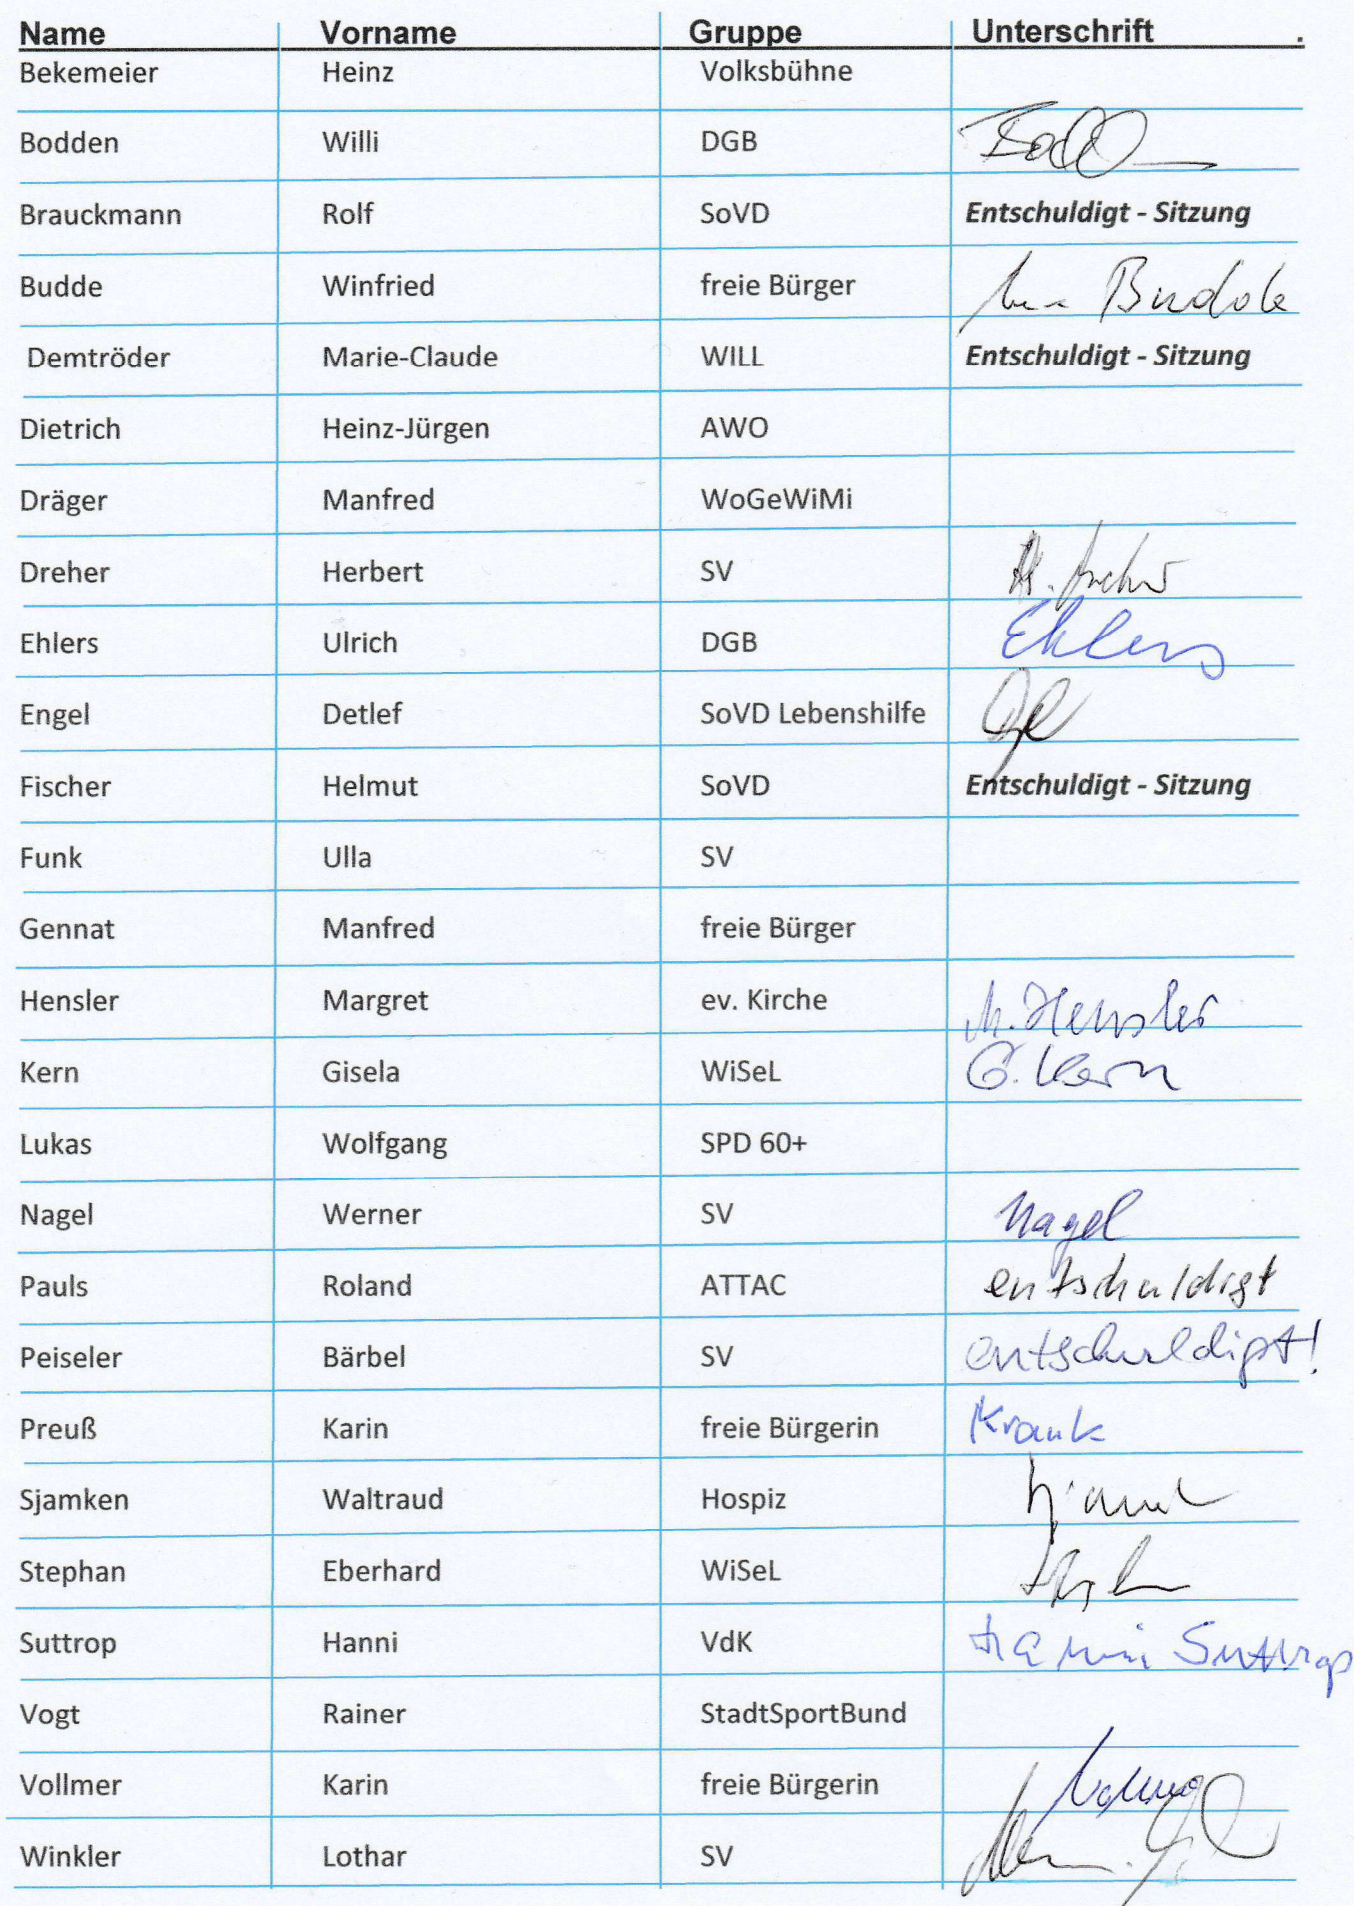 Name Vorname Gruppe Unterschrift .
Bekemeier Heinz Volksbühne
Bodden Willi DGB
Brauckmann Rolf SoVD Entschuldigt - Sitzung
Budde Winfried freie Bürger Budde
Demtröder Marie-Claude WILL Entschuldigt - Sitzung
Dietrich Heinz-Jürgen AWO
Dräger Manfred WoGeWiMi
Dreher Herbert SV
Ehlers Ulrich DGB Ehlers
Engel Detlef SoVD Lebenshilfe
Fischer Helmut SoVD Entschuldigt - Sitzung
Funk Ulla SV
Gennat Manfred freie Bürger
Hensler Margret ev. Kirche M. Hensler
Kern Gisela WiSeL G. Kern
Lukas Wolfgang SPD 60+
Nagel Werner SV Nagel
Pauls Roland ATTAC entschuldigt
Peiseler Bärbel SV entschuldigt!
Preuß Karin freie Bürgerin Krank
Sjamken Waltraud Hospiz
Stephan Eberhard WiSeL
Suttrop Hanni VdK Hanni Suttrop
Vogt Rainer StadtSportBund
Vollmer Karin freie Bürgerin
Winkler Lothar SV